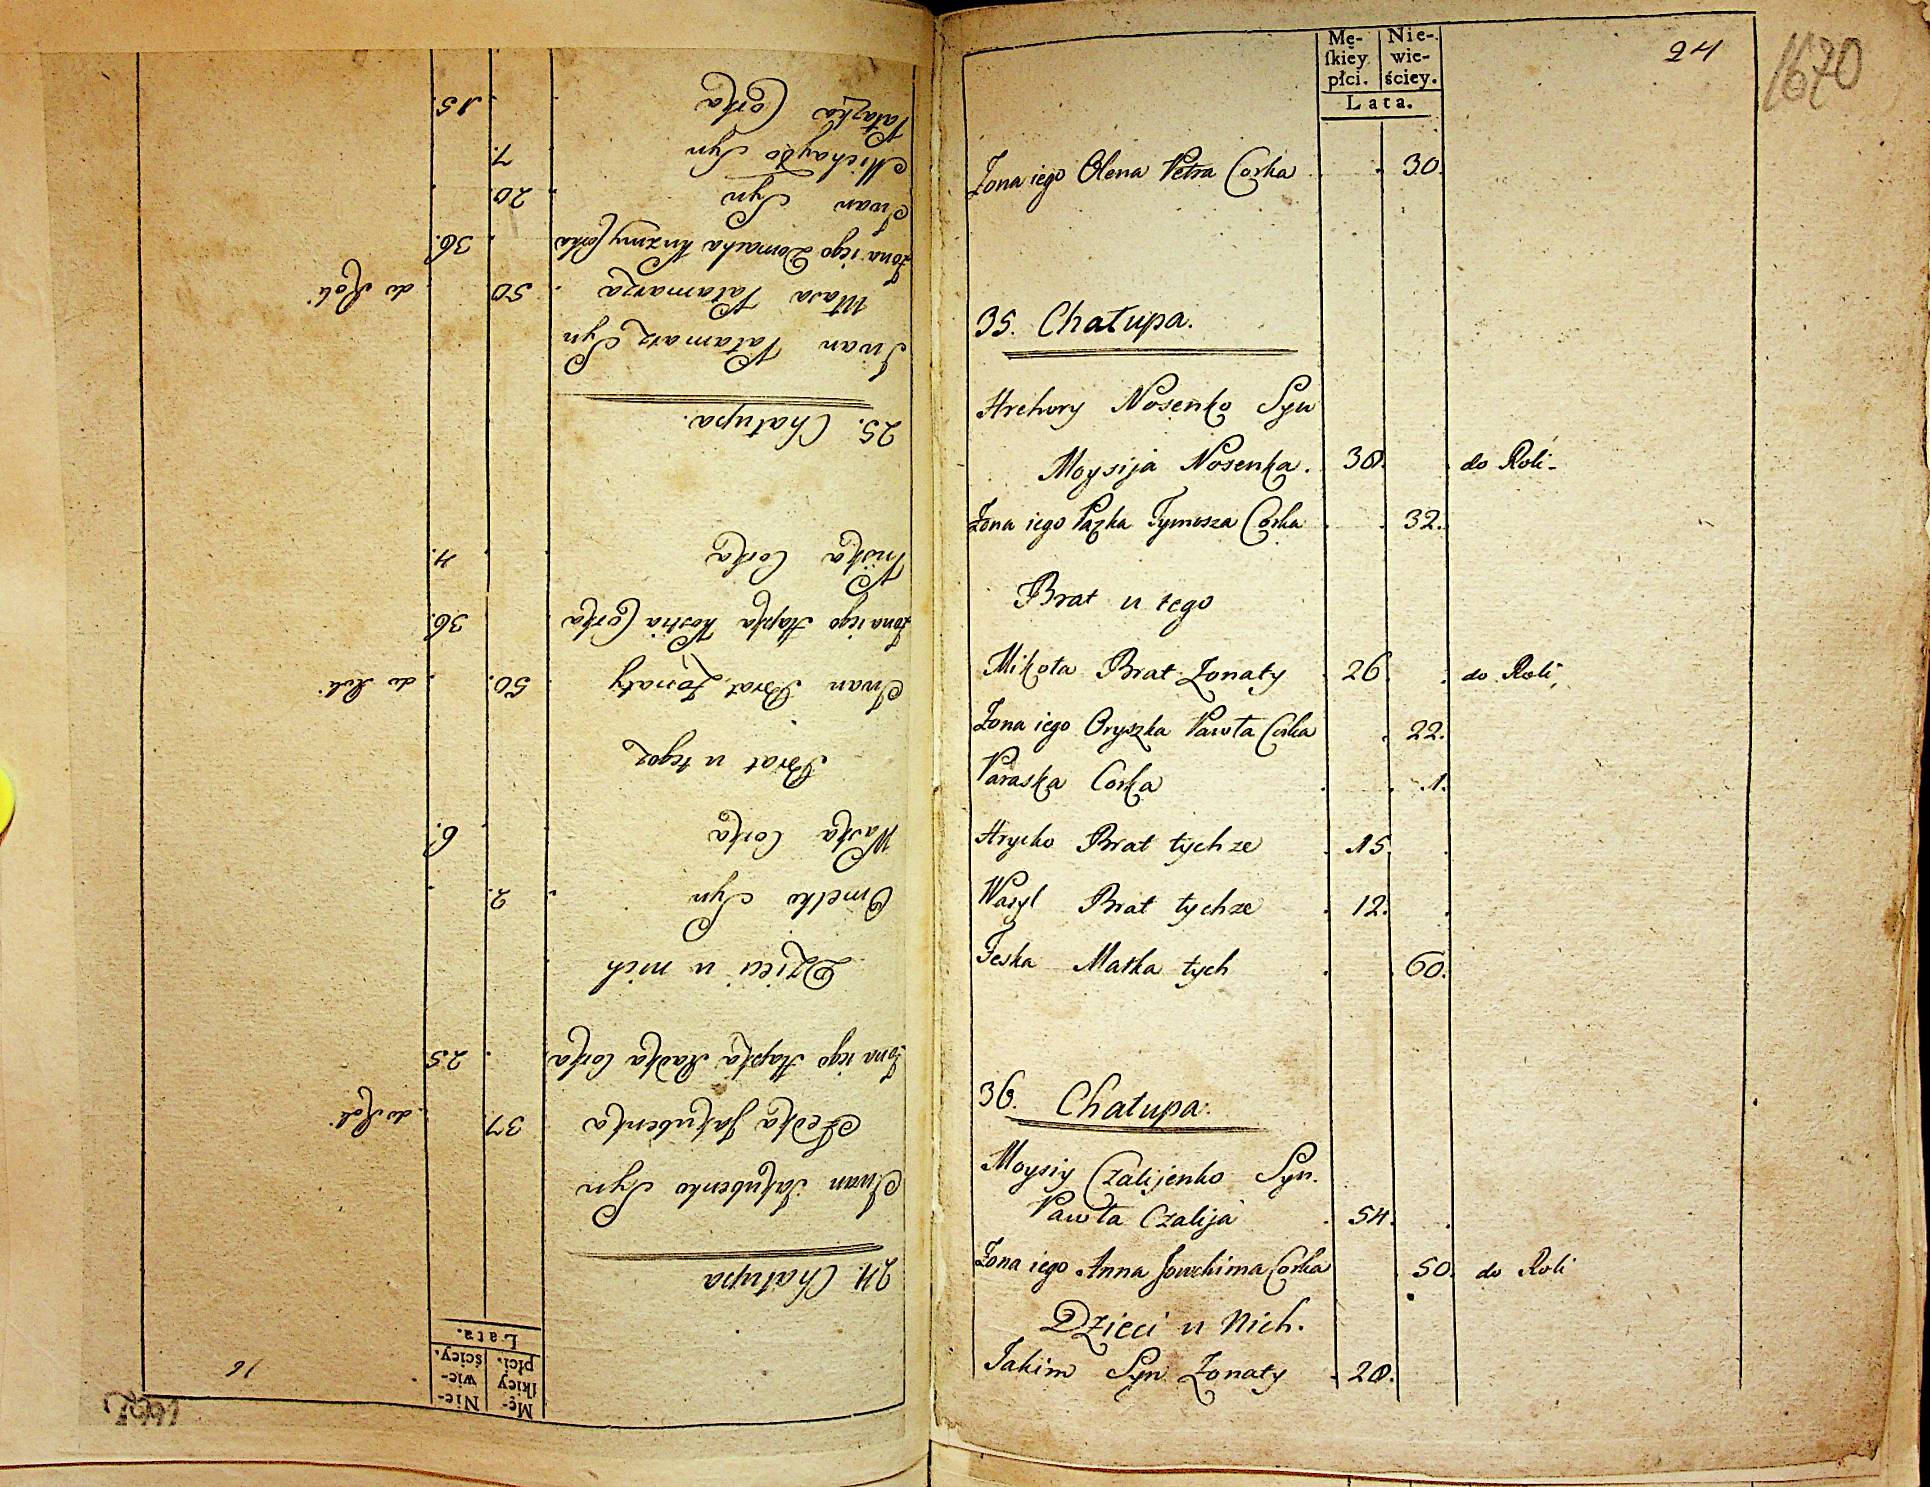 16
Mę- Nie-
skiey wie-
płci. ściey.
Lata.
24. Chałupa
Iwan Jakubenko Syn
Fedka Jakubenka 37. do Roli
Żona iego Hapka Radka Corka 25
Dzieci u nich
Omelko Syn 2.
Waska Corka 6.
Brat u tegoz
Iwan Brat Żonaty 50. do Roli
Żona iego Hapka Kostia Corka 36.
Corka 4.
25. Chałupa.
Iwan Pałamarz Syn
Własa Pałamarza 50 do Roli
Żona iego Domacha Kuzmy Corka 36.
Iwan Syn 20.
Michayło Syn 7.
Pałazka Corka 15.
Mę- Nie-
skiey wie-
płci. ściey.
Lata.
24
1670
Żona iego Olena Petra Corka 30.
35. Chałupa.
Hrehory Nosenko Syn
Moysija Nosenka. 38. do Roli
Żona iego Pazka Tymosza Corka 32.
Brat u tego
Mikoła Brat Żonaty 26 do Roli
Żona iego Oryszka Pawła Corka 22.
Paraska Corka 1.
Hrycko Brat tychze 15
Wasyl Brat tychze 12.
Feska Matka tych 60.
36. Chałupa.
Moysiy Czalijenko Syn.
Pawła Czalija 54.
Żona iego Anna Jowchima Corka 50. do Roli
Dzieci u Nich.
Jakim Syn Żonaty 28.